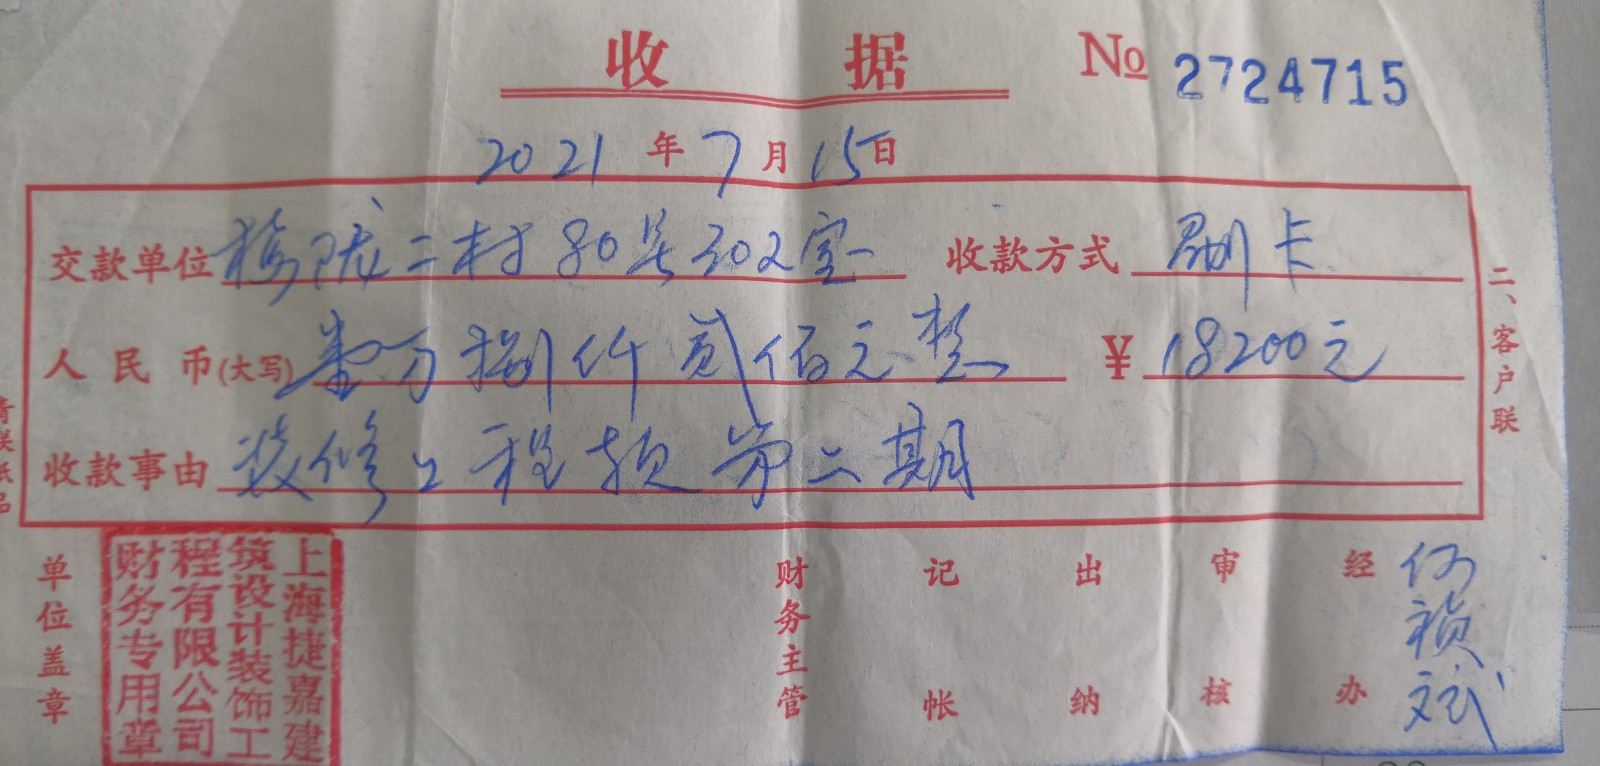 收 据 № 2724715
2021 年 7 月 15 日
交款单位 梅陇二村80号302室 收款方式 刷卡
人民币(大写) 壹万捌仟贰佰元整 ¥ 18200元
收款事由 装修工程款第二期
二、客户联
单位盖章
上海捷嘉建
筑设计装饰工
程有限公司
财务专用章
财务主管 记帐 出纳 审核 经办 何祯斌